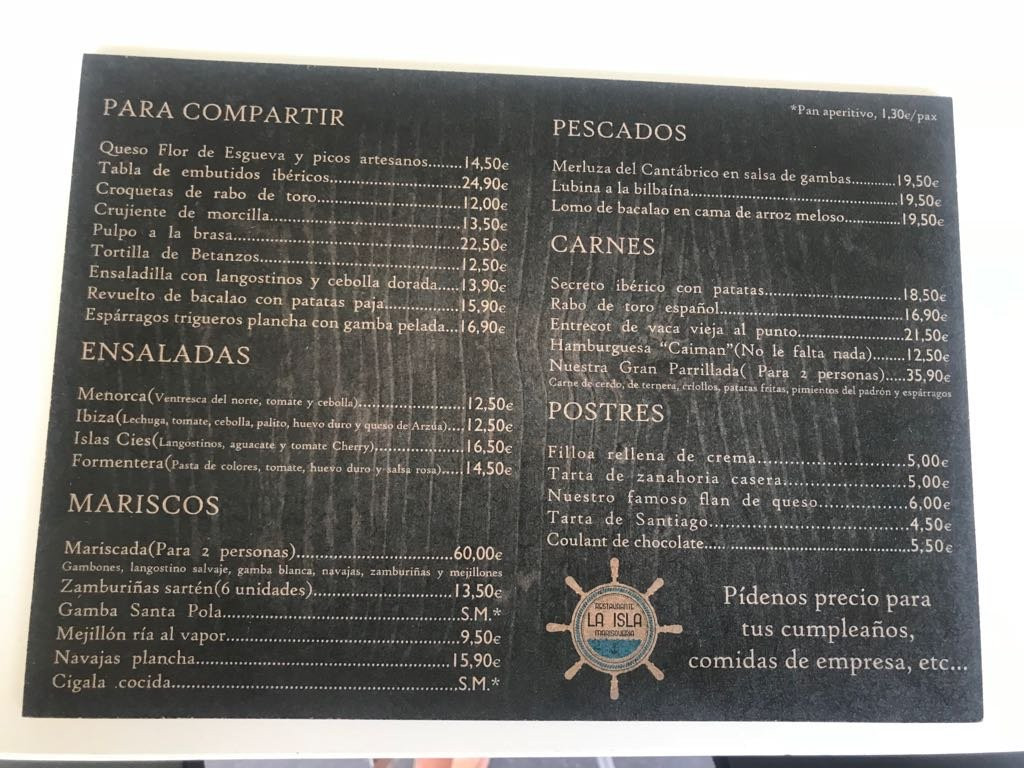 PARA COMPARTIR
Queso Flor de Esgueva y picos artesanos........14,50€
Tabla de embutidos ibéricos........24,90€
Croquetas de rabo de toro........12,00€
Crujiente de morcilla........13,50€
Pulpo a la brasa........22,50€
Tortilla de Betanzos........12,50€
Ensaladilla con langostinos y cebolla dorada.....13,90€
Revuelto de bacalao con patatas paja........15,90€
Espárragos trigueros plancha con gamba pelada...16,90€
ENSALADAS
Menorca(Ventresca del norte, tomate y cebolla)........12,50€
Ibiza(Lechuga, tomate, cebolla, palito, huevo duro y queso de Arzúa)....12,50€
Islas Cies(Langostinos, aguacate y tomate Cherry)........16,50€
Formentera(Pasta de colores, tomate, huevo duro y salsa rosa)....14,50€
MARISCOS
Mariscada(Para 2 personas)........60,00€
Gambones, langostino salvaje, gamba blanca, navajas, zamburiñas y mejillones
Zamburiñas sartén(6 unidades)........13,50€
Gamba Santa Pola........S.M.*
Mejillón ría al vapor........9,50€
Navajas plancha........15,90€
Cigala .cocida........S.M.*
*Pan aperitivo, 1,30€/pax
PESCADOS
Merluza del Cantábrico en salsa de gambas........19,50€
Lubina a la bilbaína........19,50€
Lomo de bacalao en cama de arroz meloso........19,50€
CARNES
Secreto ibérico con patatas........18,50€
Rabo de toro español........16,90€
Entrecot de vaca vieja al punto........21,50€
Hamburguesa "Caiman"(No le falta nada)........12,50€
Nuestra Gran Parrillada( Para 2 personas).....35,90€
Carne de cerdo, de ternera, criollos, patatas fritas, pimientos del padrón y espárragos
POSTRES
Filloa rellena de crema........5,00€
Tarta de zanahoria casera........5,00€
Nuestro famoso flan de queso........6,00€
Tarta de Santiago........4,50€
Coulant de chocolate........5,50€
RESTAURANTE
LA ISLA
MARISQUERIA
Pídenos precio para
tus cumpleaños,
comidas de empresa, etc...